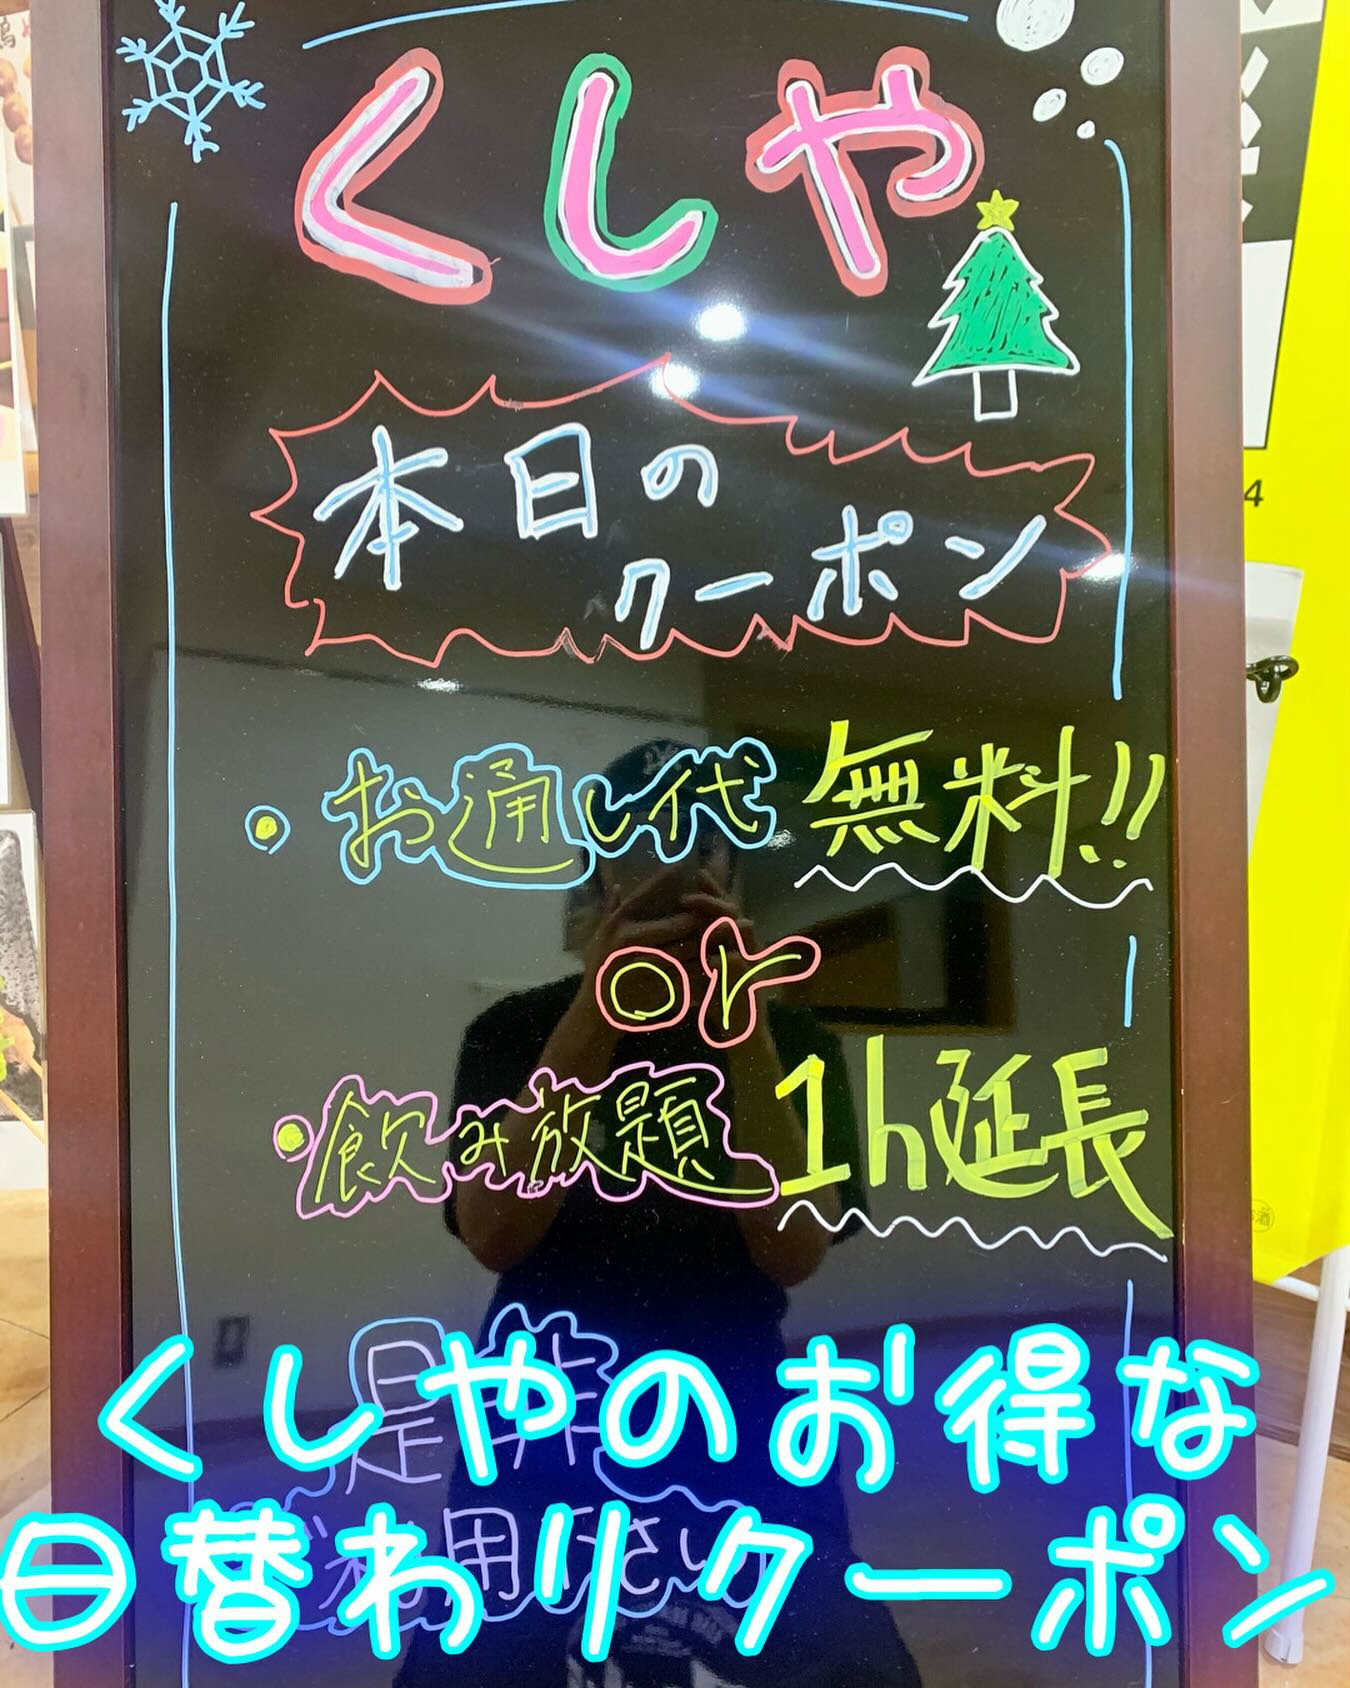 くしや
本日の
クーポン
・お通し代 無料!!
or
・飲み放題 1h延長
是非
ご利用下さい
くしやのお得な
日替わりクーポン